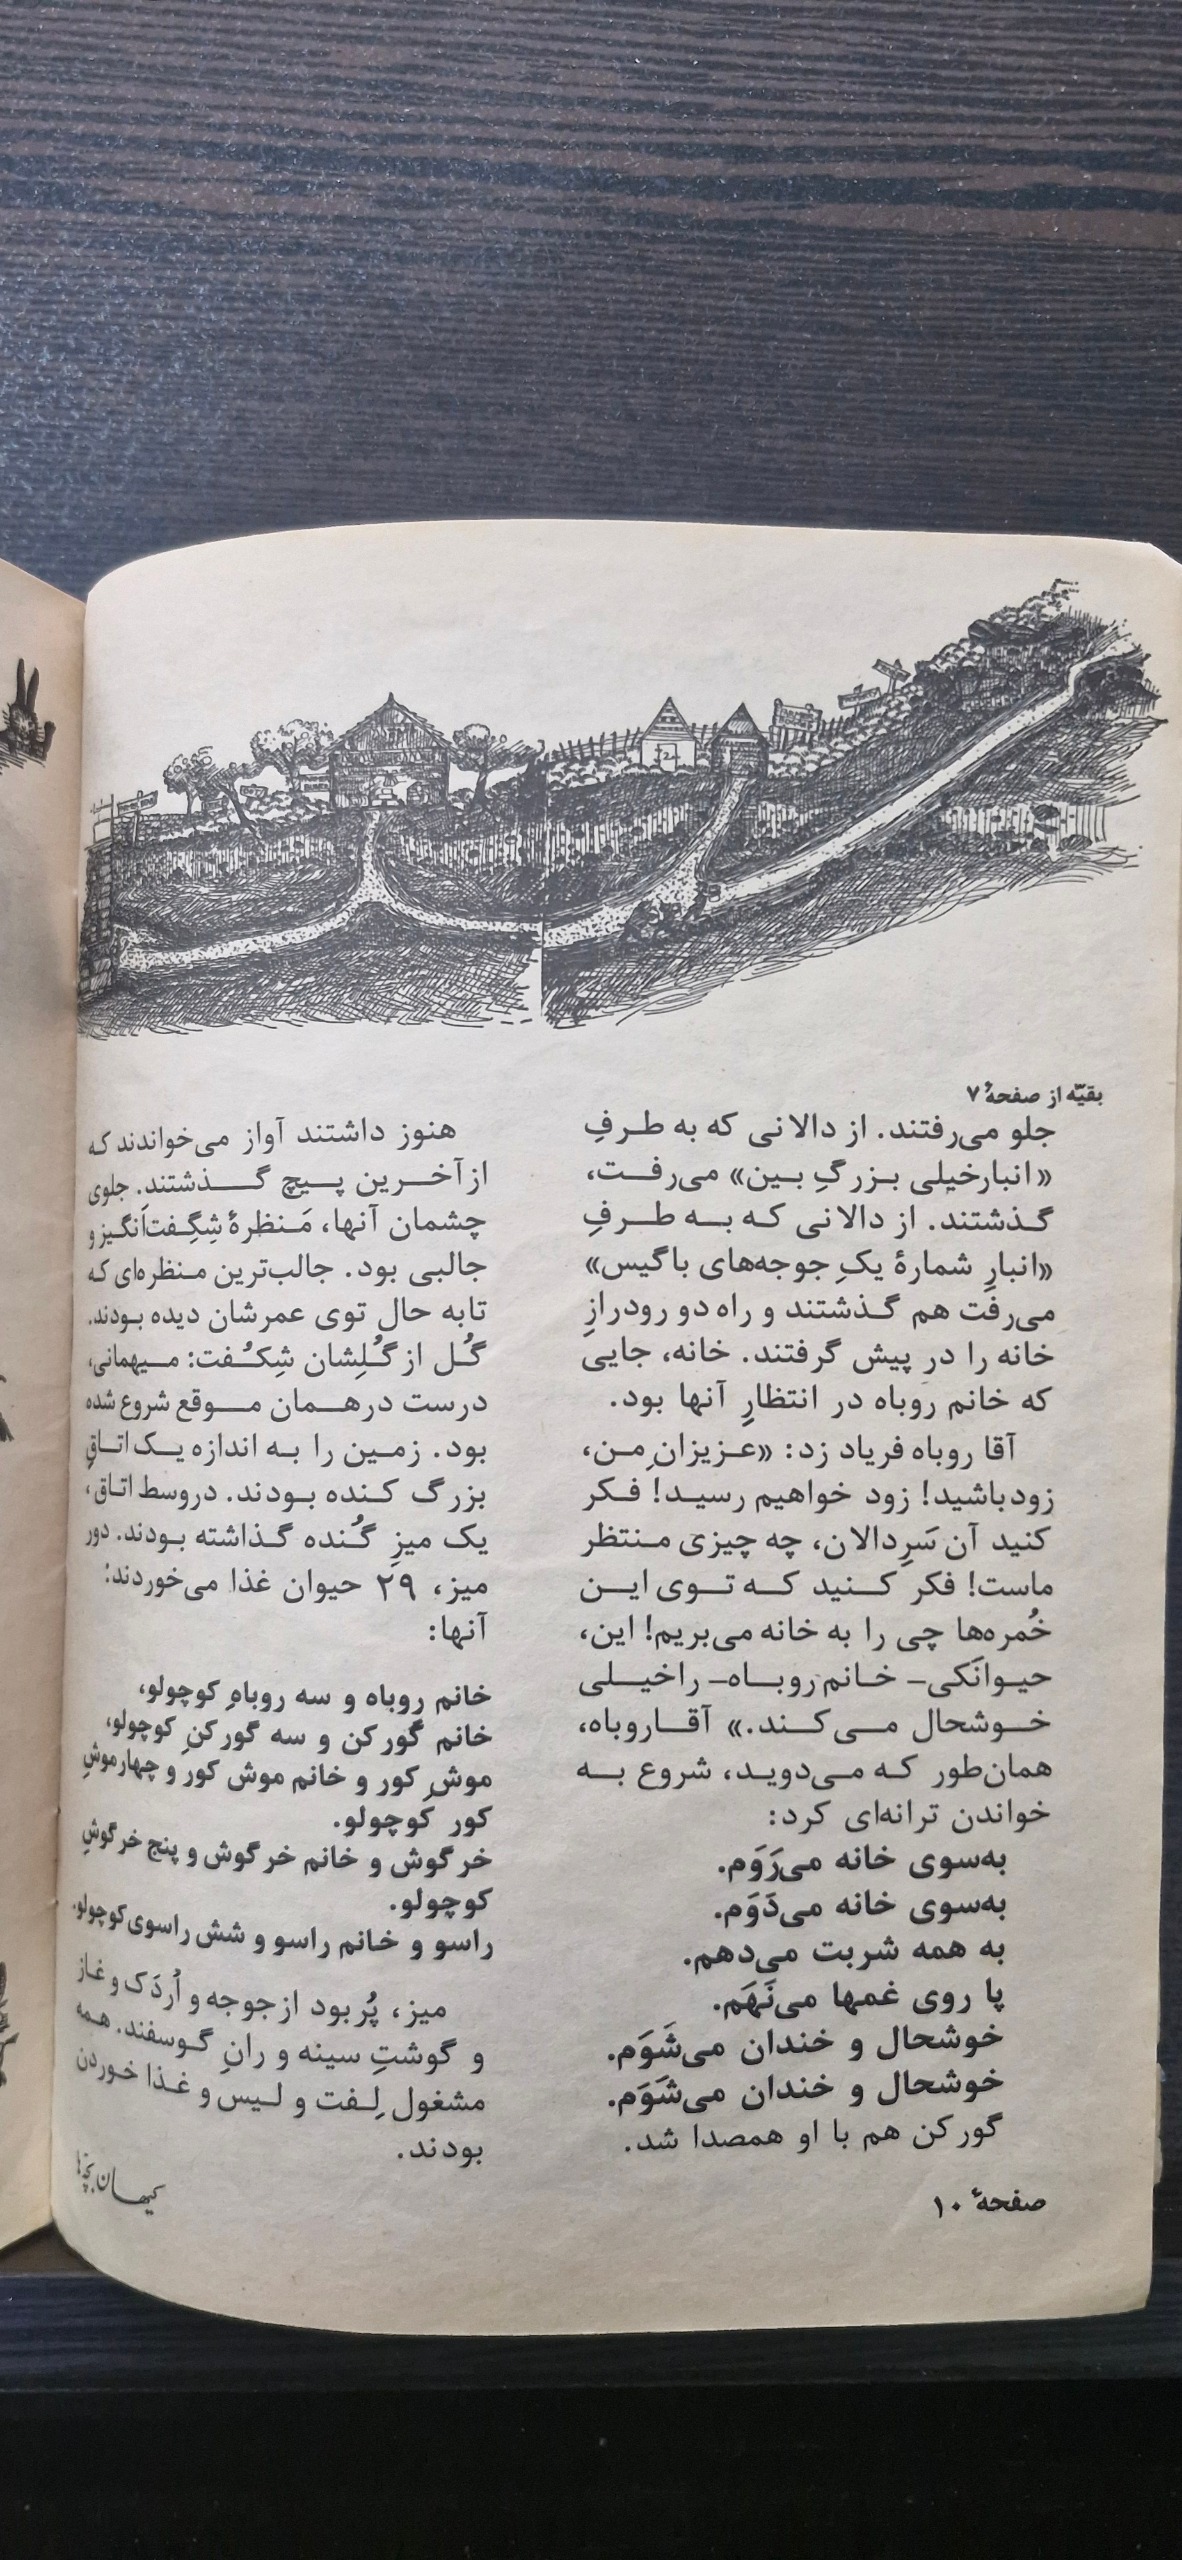 بقیّه از صفحهٔ ۷
جلو می‌رفتند. از دالانی که به طرفِ
«انبارخیلی بزرگِ بین» می‌رفت،
گذشتند. از دالانی که به طرفِ
«انبارِ شمارهٔ یکِ جوجه‌های باگیس»
می‌رفت هم گذشتند و راه دو رودرازِ
خانه را در پیش گرفتند. خانه، جایی
که خانم روباه در انتظارِ آنها بود.
آقا روباه فریاد زد: «عزیزانِ من،
زودباشید! زود خواهیم رسید! فکر
کنید آن سَرِدالان، چه چیزی منتظر
ماست! فکر کنید که توی این
خُمره‌ها چی را به خانه می‌بریم! این،
حیوانَکی- خانم روباه- راخیلی
خوشحال می‌کند.» آقاروباه،
همان‌طور که می‌دوید، شروع به
خواندن ترانه‌ای کرد:
به‌سوی خانه می‌رَوَم.
به‌سوی خانه می‌دَوَم.
به همه شربت می‌دهم.
پا روی غمها می‌نَهَم.
خوشحال و خندان می‌شَوَم.
خوشحال و خندان می‌شَوَم.
گورکن هم با او همصدا شد.
هنوز داشتند آواز می‌خواندند که
ازآخرین پیچ گذشتند. جلوی
چشمان آنها، مَنظرهٔ شِگِفت‌اَنگیز و
جالبی بود. جالب‌ترین منظره‌ای که
تابه حال توی عمرشان دیده بودند.
گُل از گُلِشان شِکُفت: میهمانی،
درست درهمان موقع شروع شده
بود. زمین را به اندازه یک اتاقِ
بزرگ کنده بودند. دروسط اتاق،
یک میزِ گُنده گذاشته بودند. دور
میز، ۲۹ حیوان غذا می‌خوردند:
آنها:
خانم روباه و سه روباهِ کوچولو،
خانم گورکن و سه گورکنِ کوچولو،
موش کور و خانم موش کور و چهارموشِ
کور کوچولو.
خرگوش و خانم خرگوش و پنج خرگوشِ
کوچولو.
راسو و خانم راسو و شش راسوی کوچولو.
میز، پُربود ازجوجه و اُردَک و غاز
و گوشتِ سینه و رانِ گوسفند. همه
مشغول لِفت و لیس و غذا خوردن
بودند.
صفحهٔ ۱۰
کیهان بچه‌ها